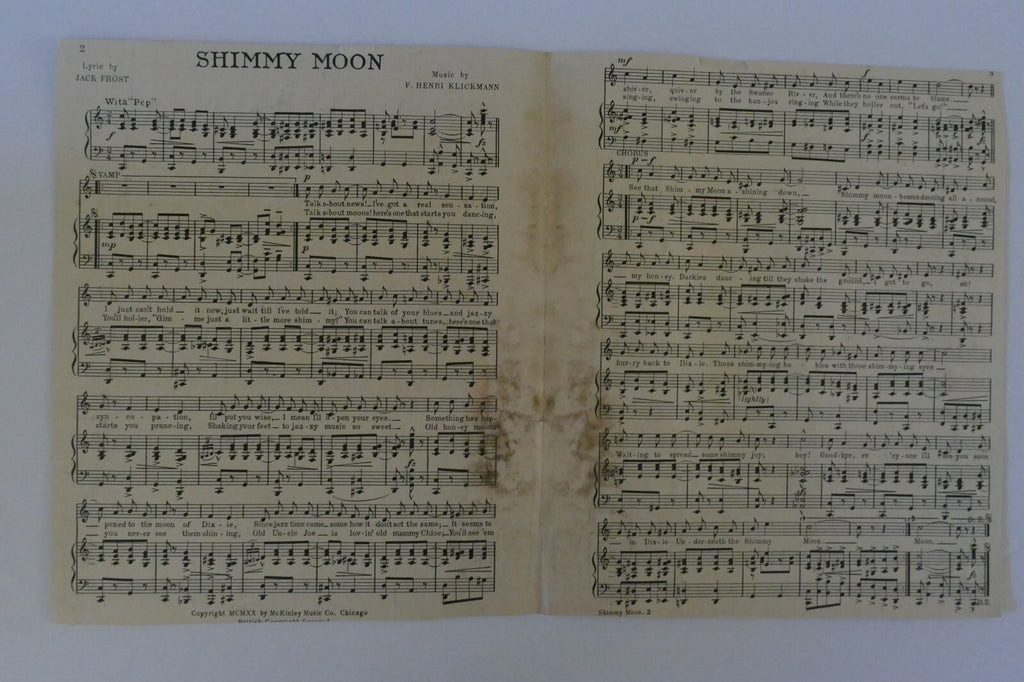 2
SHIMMY MOON
Lyric by
JACK FROST
Music by
F. HENRI KLICKMANN
With "Pep"
f
fz
VAMP
p
Talk a-bout news!_ I've got a real sen - sa - tion,
Talk a-bout moons! here's one that starts you danc-ing,
mp
p
I just can't hold _ it now, just wait till I've told _ it; You can talk of your blues_ and jaz-zy
You'll hol-ler, "Gim - me just a lit - tle more shim - my!" You can talk a - bout tunes_ here's one that
syn - co - pa - tion, I'll put you wise,_ I mean I'll o - pen your eyes._ Something has hap-
starts you pranc-ing, Shaking your feet_ to jaz - zy music so sweet._ Old hon-ey moon
_ pened to the moon of Dix - ie, Since jazz time came_ some how it don't act the same;_ It seems to
_ you nev-er see them shin - ing, Old Un-cle Joe _ is lov-in' old mammy Chloe;_ You'll see 'em
Copyright MCMXX by McKinley Music Co. Chicago
British Copyright
mf
f
3
shiv - er, quiv - er by the Swanee Riv - er, And there's no one seems to blame._
sing - ing, swinging to the ban - jos ring - ing While they holler out, "Let's go!"_
mf
fz
CHORUS
p-f
See that Shim - my Moon a - shining down,_ Shimmy moon - beams darting all a - round,
p-f
_ my hon - ey. Darkies danc - ing till they shake the ground,_ I got to go, oh!
hur-ry back to Dix - ie. Those shim-my-ing ba - bies with those shim-my-ing eyes _
(lightly)
Wait-ing to spread_ some shimmy joy; boy! Good-bye, ev - 'ry-one I'll see you soon
_ in Dix-ie Un - der-neath the Shimmy Moon._ Moon._
1
2
D.S.
D.S.
Shimmy Moon. 2